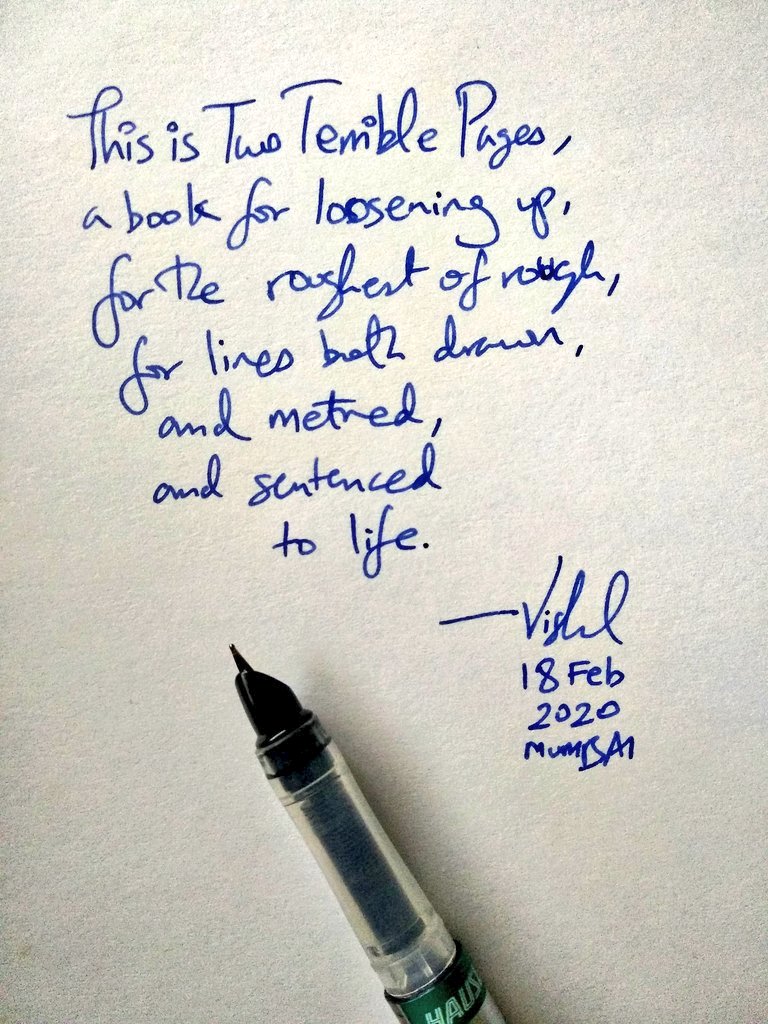 This is Two Terrible Pages,
a book for loosening up,
for the roughest of rough,
for lines both drawn,
and metred,
and sentenced
to life.
—Vishal
18 Feb
2020
MUMBAI
HAUS